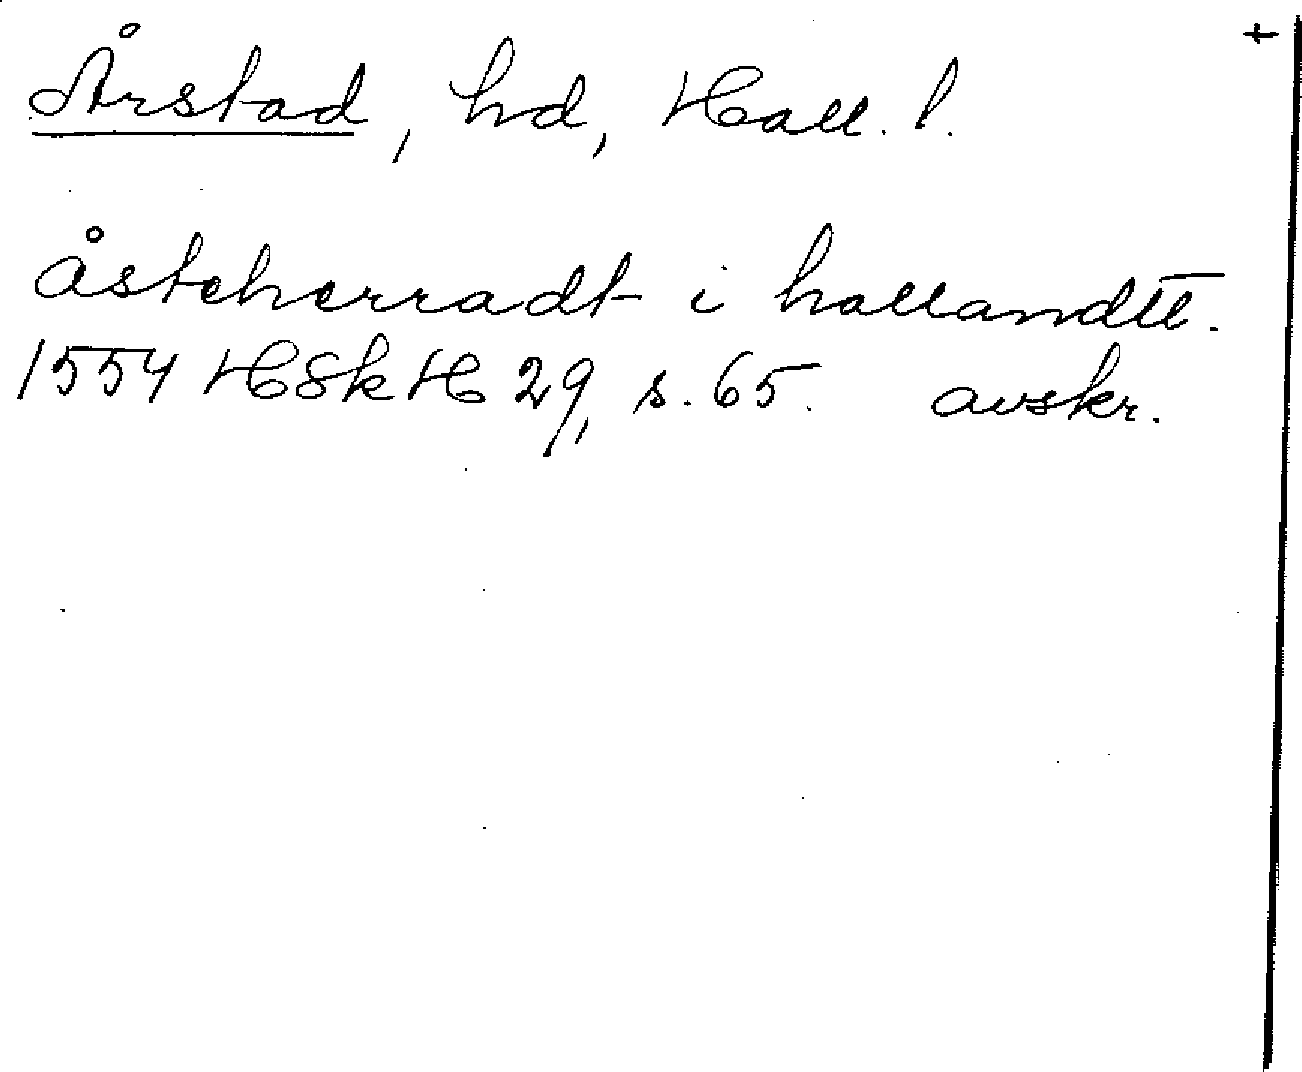 Årstad, hd, Hall. l.
åsteherradt i hallandtt.
1554 HSkH 29, s. 65. avskr.